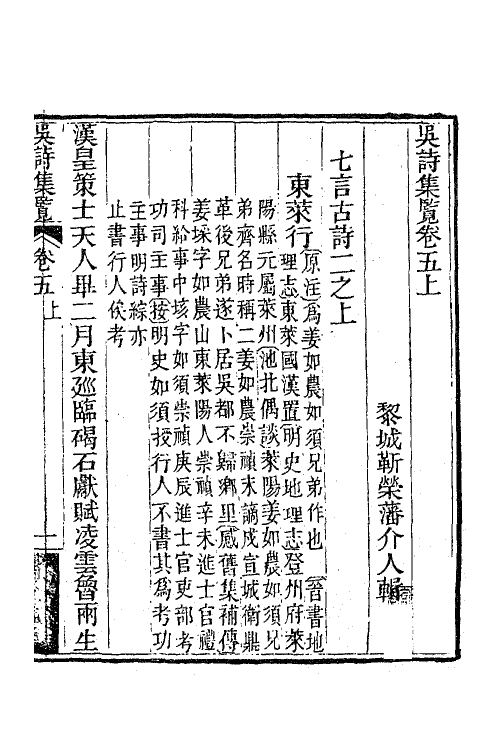 吳詩集覽卷五上
黎城靳榮藩介人輯
七言古詩二之上
東萊行
（原注）為姜如農如須兄弟作也（晉書地
理志東萊國漢置（明史地理志登州府萊
陽縣元屬萊州（池北偶談萊陽姜如農如須兄
弟齊名時稱二姜如農崇禎末謫戍宣城衛鼎
革後兄弟遂卜居吳都不歸鄉里（感舊集補傳
姜埰字如農山東萊陽人崇禎辛未進士官禮
科給事中垓字如須崇禎庚辰進士官吏部考
功司主事（按明史如須授行人不書其為考功
主事明詩綜亦
止書行人俟考
漢皇策士天人畢二月東巡臨碣石獻賦凌雲魯兩生
吳詩集覽 卷五上 一